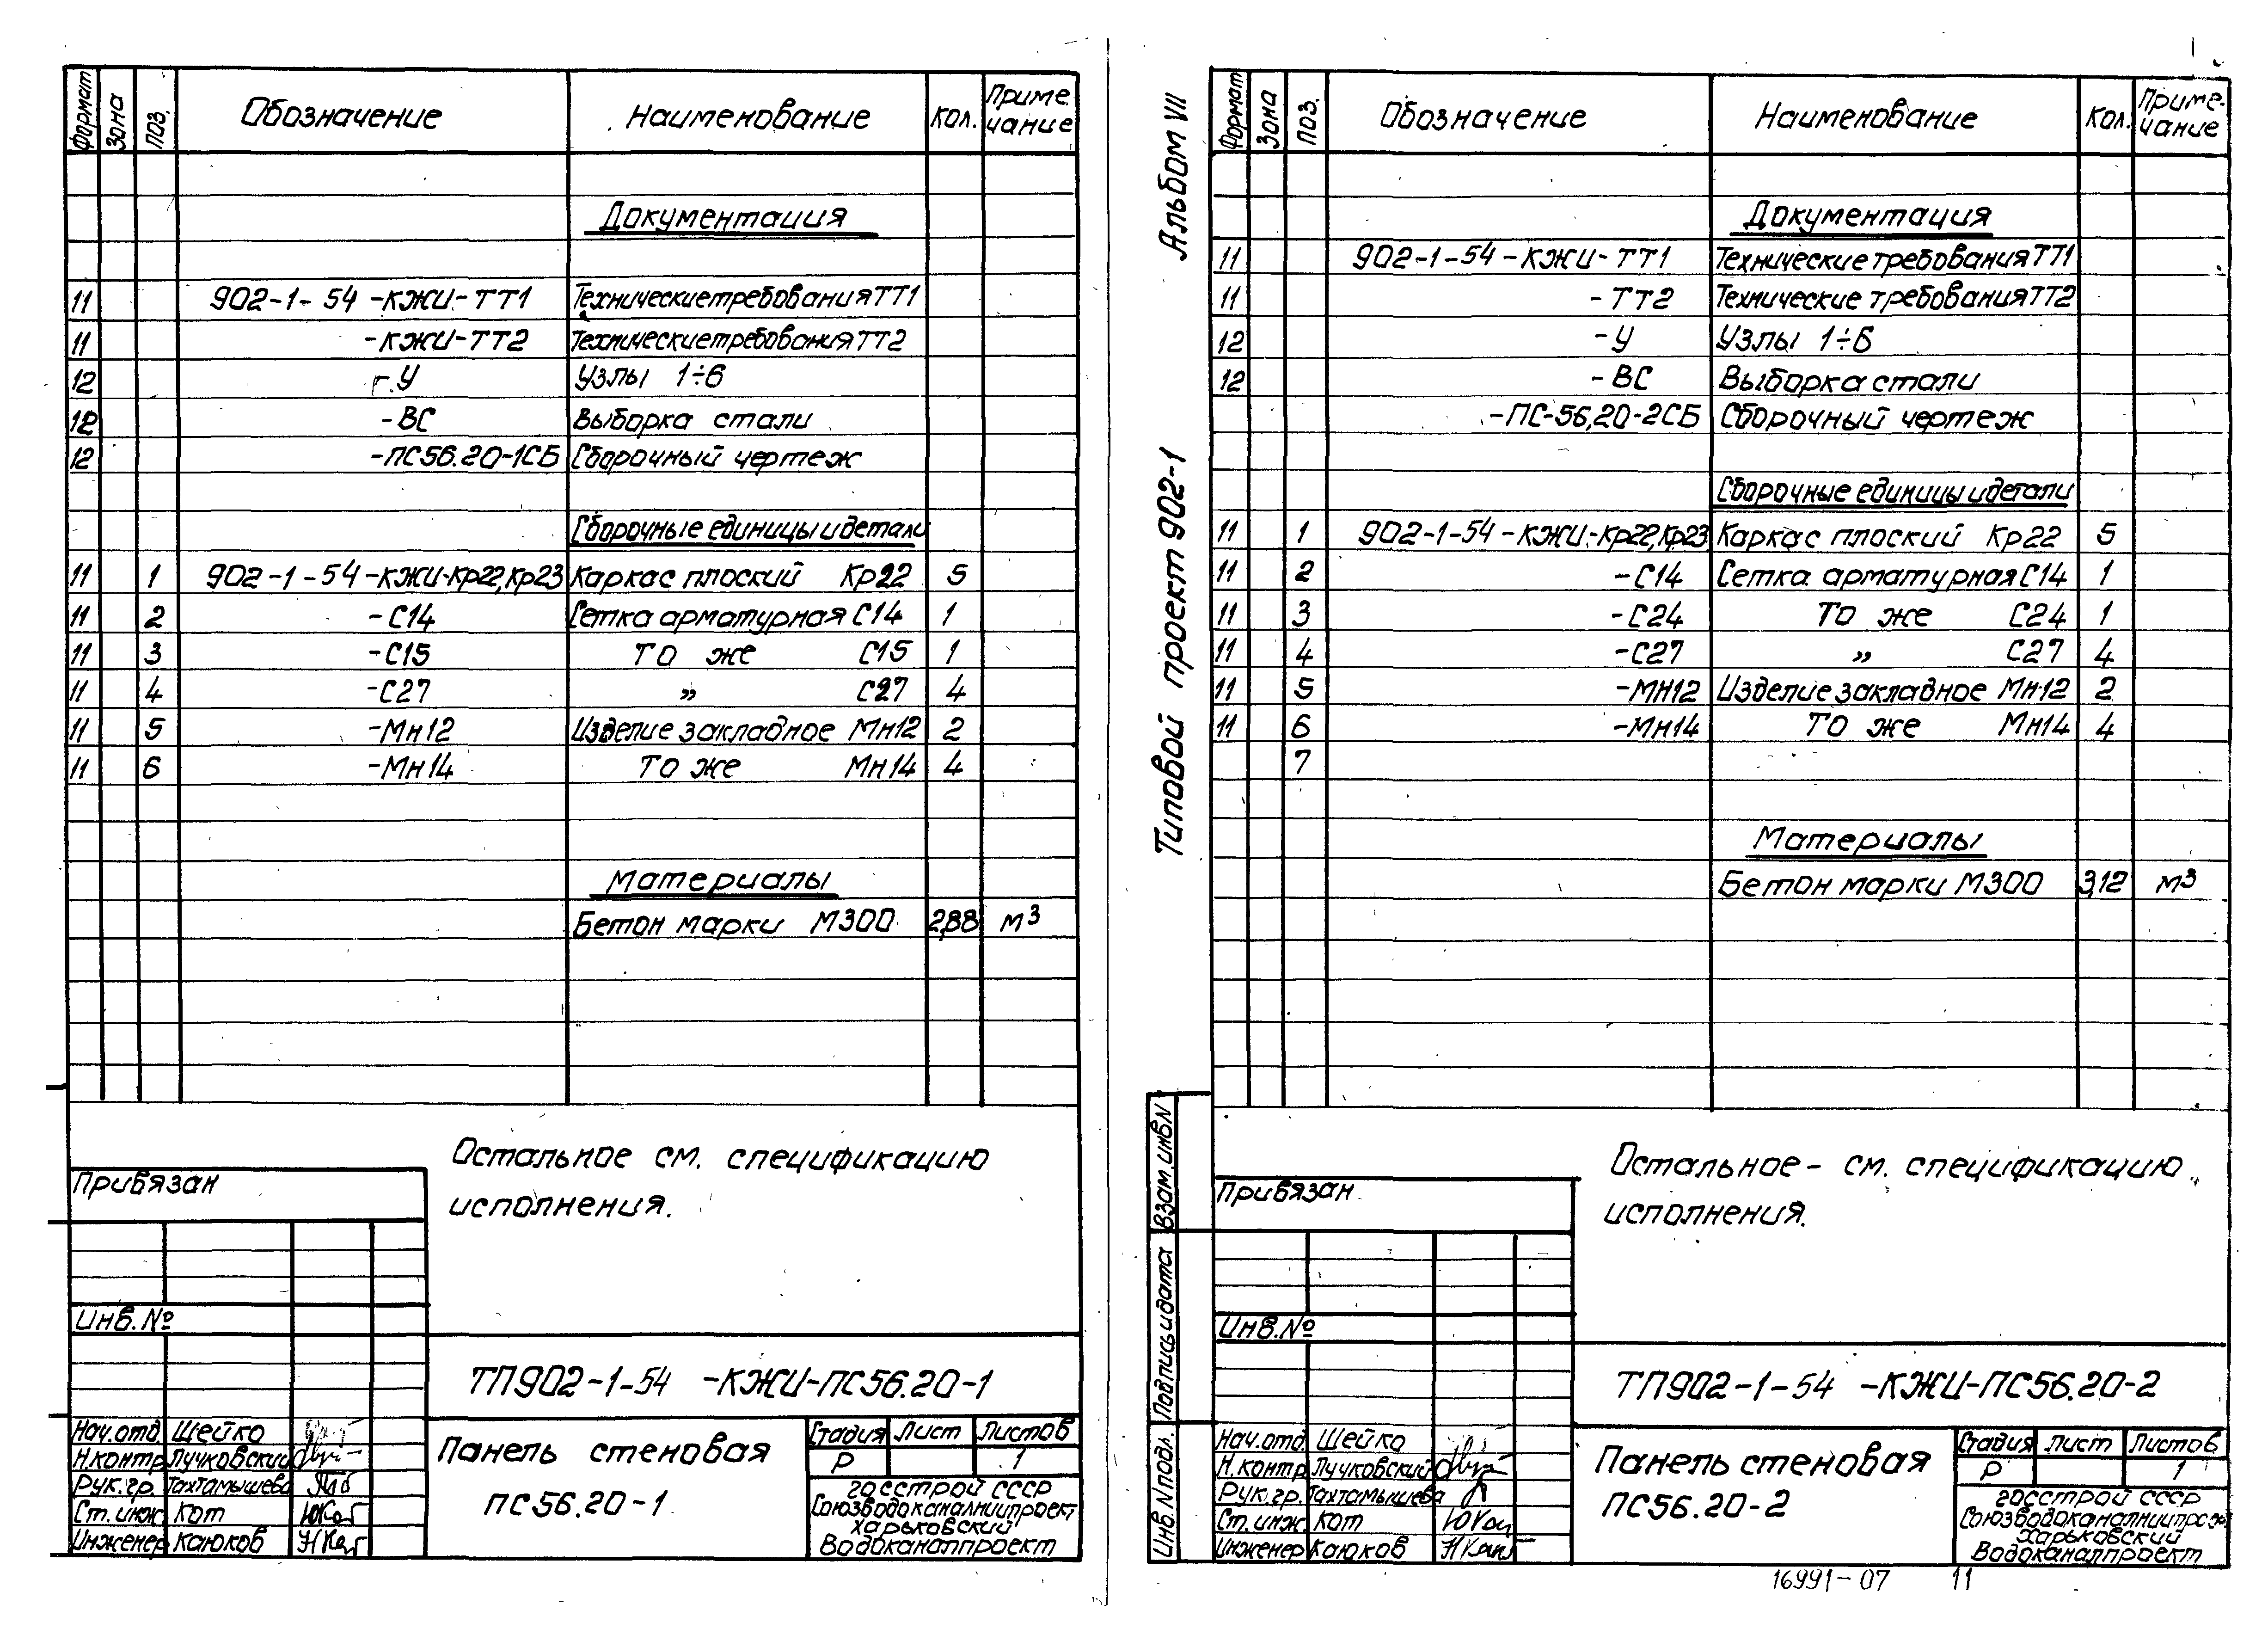 Формат Зона Поз. Обозначение Наименование Кол. Приме-
чание
Документация
11 902-1-54-КЖИ-ТТ1 Технические требования ТТ1
11 -КЖИ-ТТ2 Технические требования ТТ2
12 -У Узлы 1÷6
12 -ВС Выборка стали
12 -ПС56.20-1СБ Сборочный чертеж
Сборочные единицы и детали
11 1 902-1-54-КЖИ-Кр22,Кр23 Каркас плоский Кр22 5
11 2 -С14 Сетка арматурная С14 1
11 3 -С15 То же С15 1
11 4 -С27 „ С27 4
11 5 -Мн12 Изделие закладное Мн12 2
11 6 -Мн14 То же Мн14 4
Материалы
Бетон марки М300 2,88 м3
Остальное см. спецификацию
исполнения.
Привязан
Инв.№
ТП902-1-54 -КЖИ-ПС56.20-1
Нач.отд. Шейко
Н.контр. Лучковский
Рук.гр. Тахтамышева
Ст.инж. Кот
Инженер Каюков
Панель стеновая
ПС56.20-1
Стадия Лист Листов
Р 1
Госстрой СССР
Союзводоканалниипроект
Харьковский
Водоканалпроект
Альбом VII
Типовой проект 902-1
Взам.инв.N
Подпись и дата
Инв.N подл.
Формат Зона Поз. Обозначение Наименование Кол. Приме-
чание
Документация
11 902-1-54-КЖИ-ТТ1 Технические требования ТТ1
11 -ТТ2 Технические требования ТТ2
12 -У Узлы 1÷6
12 -ВС Выборка стали
-ПС-56,20-2СБ Сборочный чертеж
Сборочные единицы и детали
11 1 902-1-54-КЖИ-Кр22,Кр23 Каркас плоский Кр22 5
11 2 -С14 Сетка арматурная С14 1
11 3 -С24 То же С24 1
11 4 -С27 „ С27 4
11 5 -МН12 Изделие закладное Мн12 2
11 6 -Мн14 То же Мн14 4
7
Материалы
Бетон марки М300 3,12 м3
Остальное - см. спецификацию
исполнения.
Привязан
Инв.№
ТП902-1-54 -КЖИ-ПС56.20-2
Нач.отд. Шейко
Н.контр. Лучковский
Рук.гр. Тахтамышева
Ст.инж. Кот
Инженер Каюков
Панель стеновая
ПС56.20-2
Стадия Лист Листов
Р 1
Госстрой СССР
Союзводоканалниипроект
Харьковский
Водоканалпроект
16991-07 11